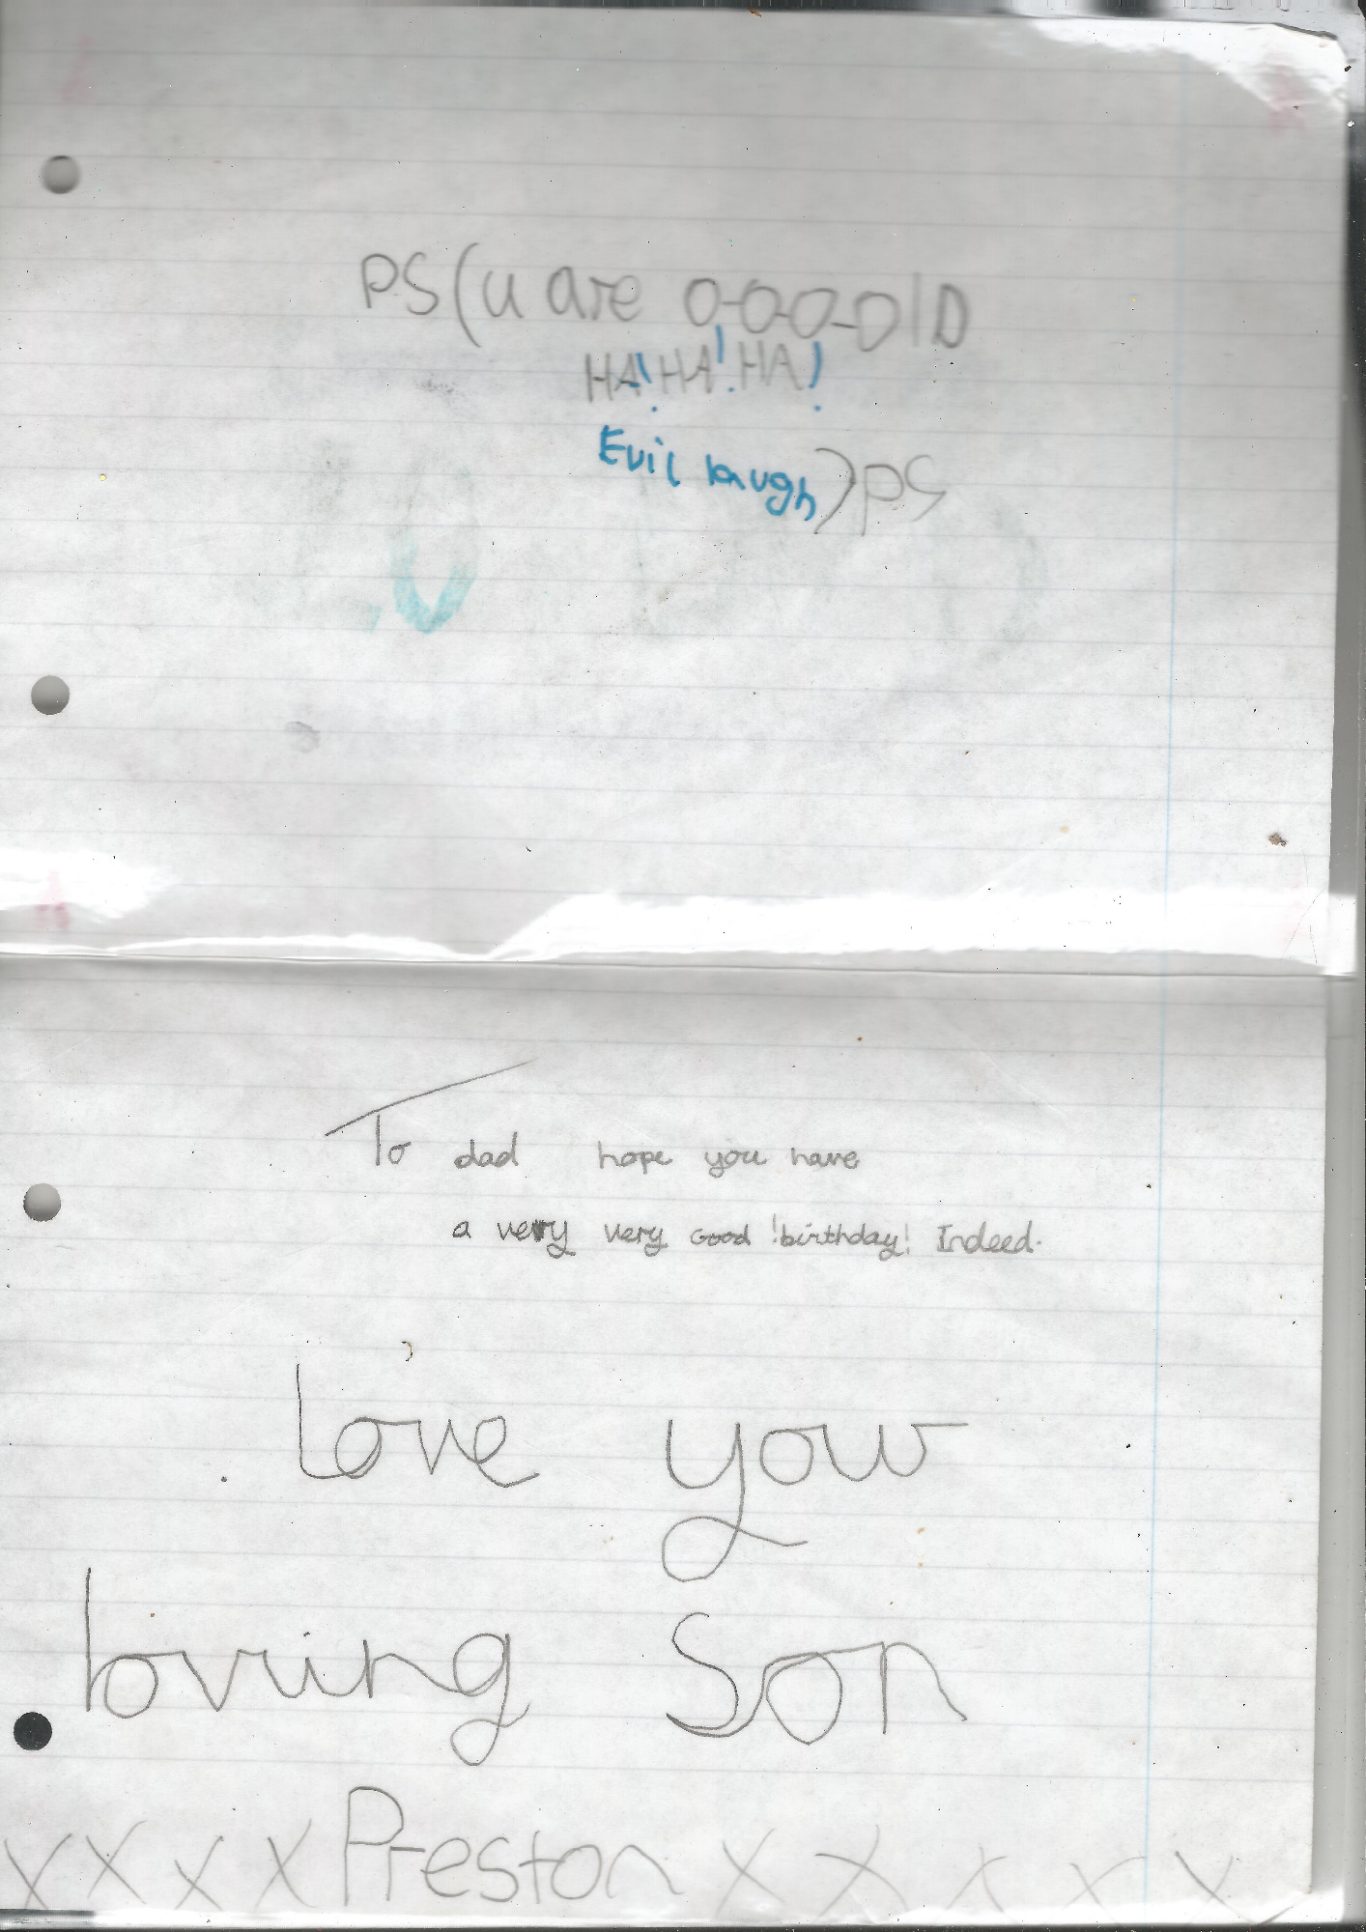 PS(u are o-o-o-olD
HA! HA! HA!
Evil laugh)PS
To dad hope you have
a very very Good !birthday! Indeed.
love your
loving Son
xxxx Preston xxxxx